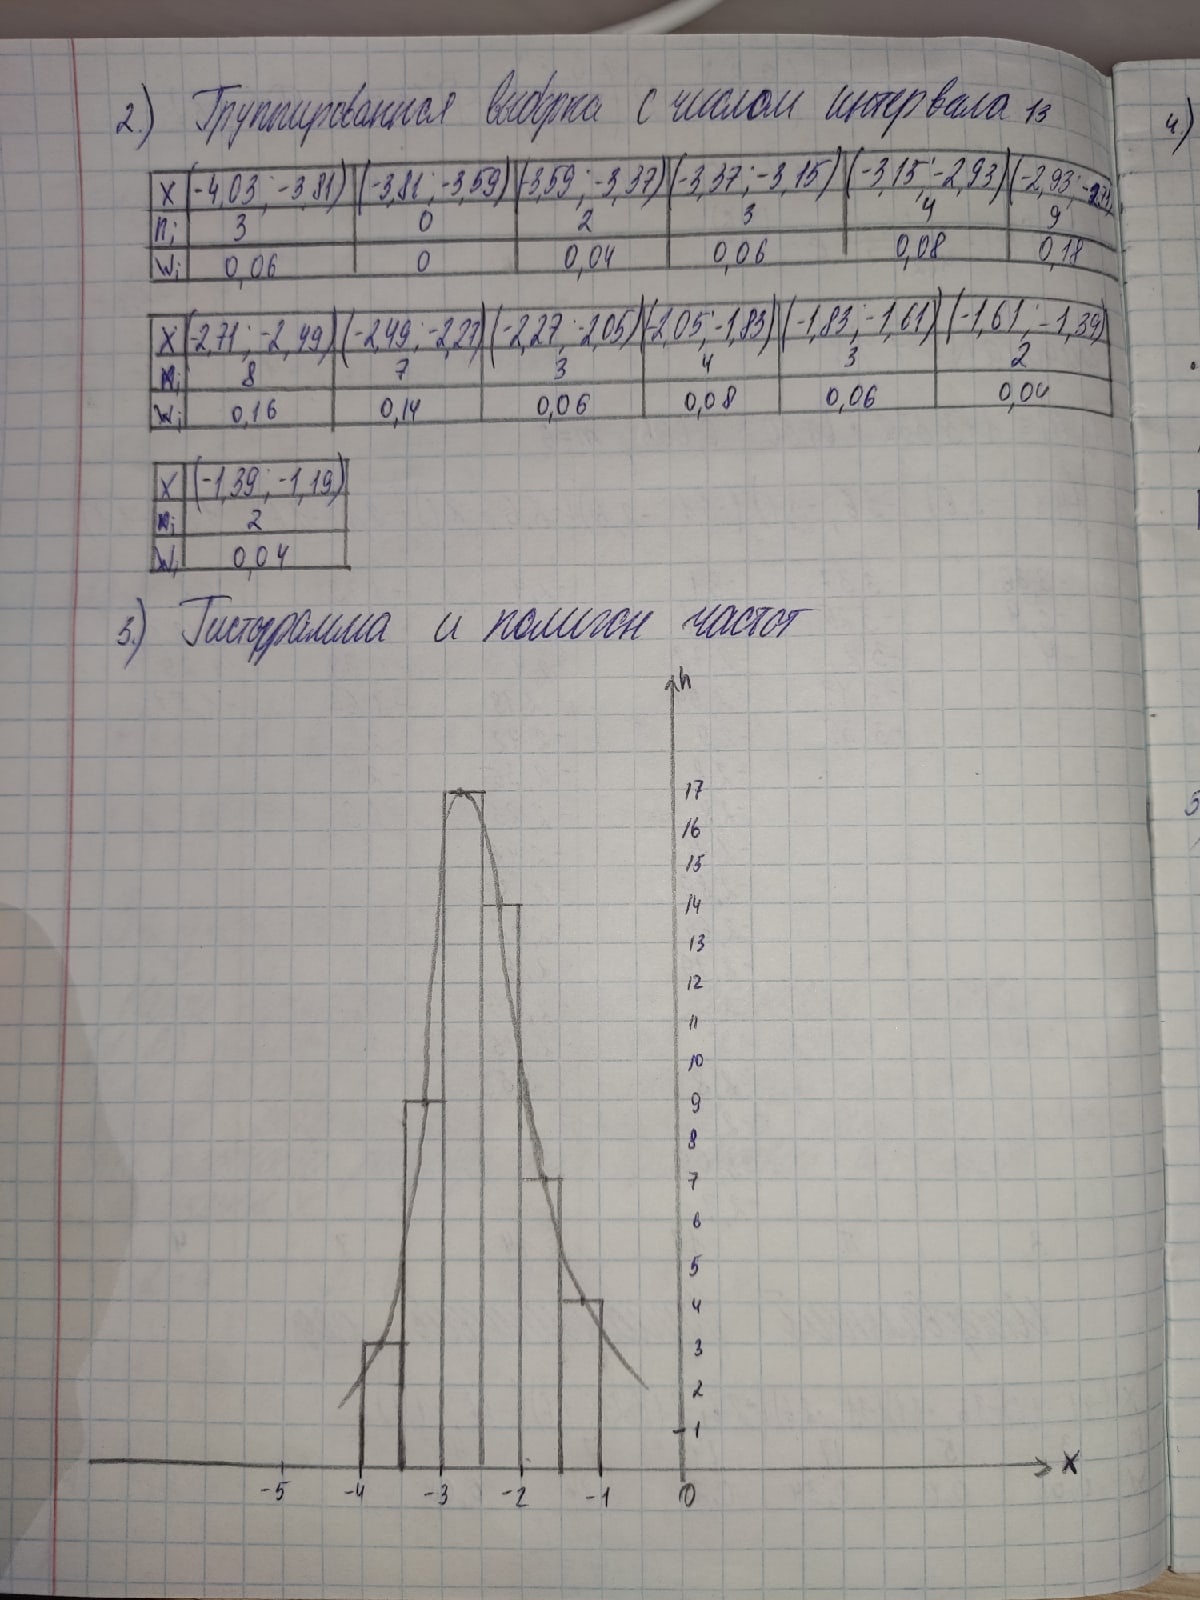 2.) Группированная выборка с числом интервала 13
X (-4,03 ; -3,81) (-3,81 ; -3,59) (-3,59 ; -3,37) (-3,37 ; -3,15) (-3,15 ; -2,93) (-2,93 ;
ni 3 0 2 3 4 9
Wi 0,06 0 0,04 0,06 0,08 0,18
X (-2,71 ; -2,49) (-2,49 ; -2,27) (-2,27 ; -2,05) (-2,05 ; -1,83) (-1,83 ; -1,61) (-1,61 ; -1,39)
ni 8 7 3 4 3 2
Wi 0,16 0,14 0,06 0,08 0,06 0,04
X (-1,39 ; -1,19)
ni 2
Wi 0,04
3.) Гистограмма и полигон частот
h
17
16
15
14
13
12
11
10
9
8
7
6
5
4
3
2
1
X
-5 -4 -3 -2 -1 0
4)
5